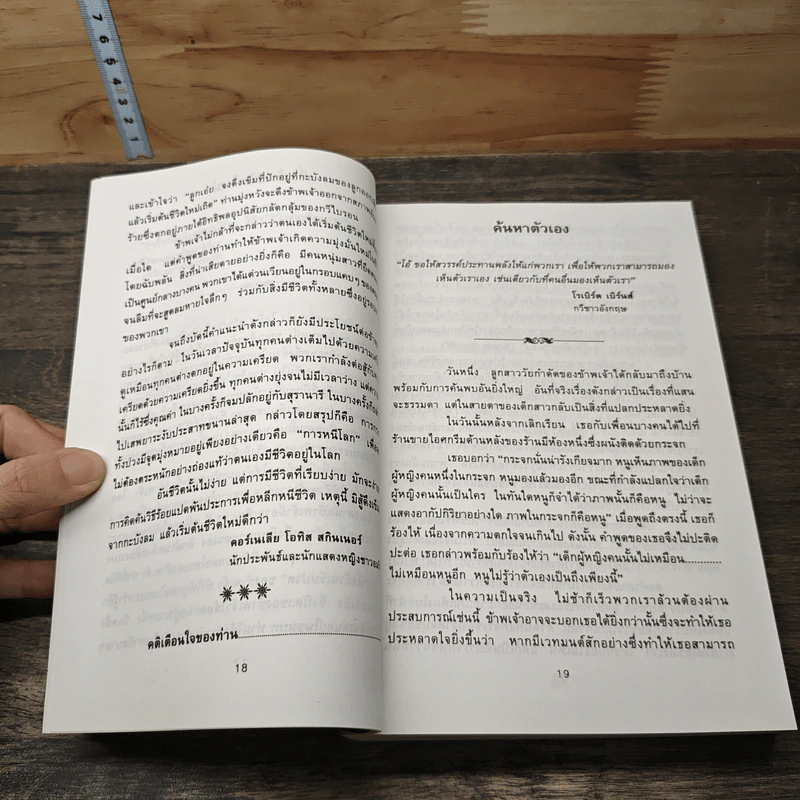 7
6
5
4
3
2
1
และเข้าใจว่า "ลูกเอ๋ย จงดึงเข็มที่ปักอยู่ที่กะบังลมของลูกออก
แล้วเริ่มต้นชีวิตใหม่เถิด" ท่านมุ่งหวังจะดึงข้าพเจ้าออกจากสภาพ
ร้ายซึ่งตกอยู่ภายใต้อิทธิพลอุปนิสัยกลัดกลุ้มของกวีไบรอน
ข้าพเจ้าไม่กล้าที่จะกล่าวว่าตนเองได้เริ่มต้นชีวิตใหม่
เมื่อใด แต่คำพูดของท่านทำให้ข้าพเจ้าเกิดความมุ่งมั่นใหม่
โดยฉับพลัน สิ่งที่น่าเสียดายอย่างยิ่งก็คือ มีคนหนุ่มสาวที่
เป็นศูนย์กลางบางคน พวกเขาได้แต่วนเวียนอยู่ในกรอบแคบๆ ของ
จนลืมที่จะสูดลมหายใจลึกๆ ร่วมกับสิ่งมีชีวิตทั้งหลายซึ่งอยู่
ของพวกเขา
จนถึงบัดนี้คำแนะนำดังกล่าวก็ยังมีประโยชน์ต่อข้าพ
อย่างไรก็ตาม ในวันเวลาปัจจุบันทุกคนต่างเต็มไปด้วยความ
ดูเหมือนทุกคนต่างตกอยู่ในความเครียด พวกเรากำลังต่อสู้กับ
เครียดด้วยความเครียดยิ่งขึ้น ทุกคนต่างยุ่งจนไม่มีเวลาว่าง แต่
นั้นก็ไร้ซึ่งคุณค่า ในบางครั้งก็จมปลักอยู่กับสุรานารี ในบางครั้ง
ไปเสพยาระงับประสาทขนานล่าสุด กล่าวโดยสรุปก็คือ การ
ทั้งปวงมีจุดมุ่งหมายอยู่เพียงอย่างเดียวคือ "การหนีโลก" เพื่อ
ไม่ต้องตระหนักอย่างถ่องแท้ว่าตนเองมีชีวิตอยู่ในโลก
อันชีวิตนั้นไม่ง่าย แต่การมีชีวิตที่เรียบง่าย มักจะง่าย
การคิดค้นวิธีร้อยแปดพันประการเพื่อหลีกหนีชีวิต เหตุนี้ มิสู้ดึงเข็ม
จากกะบังลม แล้วเริ่มต้นชีวิตใหม่ดีกว่า
คอร์เนเลีย โอทิส สกินเนอร์
นักประพันธ์และนักแสดงหญิงชาว
คติเตือนใจของท่าน
18
ค้นหาตัวเอง
"โอ้ ขอให้สวรรค์ประทานพลังให้แก่พวกเรา เพื่อให้พวกเราสามารถมอง
เห็นตัวเราเอง เช่นเดียวกับที่คนอื่นมองเห็นตัวเรา"
โรเบิร์ต เบิร์นส์
กวีชาวอังกฤษ
วันหนึ่ง ลูกสาววัยกำดัดของข้าพเจ้าได้กลับมาถึงบ้าน
พร้อมกับการค้นพบอันยิ่งใหญ่ อันที่จริงเรื่องดังกล่าวเป็นเรื่องที่แสน
จะธรรมดา แต่ในสายตาของเด็กสาวกลับเป็นสิ่งที่แปลกประหลาดยิ่ง
ในวันนั้นหลังจากเลิกเรียน เธอกับเพื่อนบางคนได้ไปที่
ร้านขายไอศกรีมด้านหลังของร้านมีห้องหนึ่งซึ่งผนังติดด้วยกระจก
เธอบอกว่า "กระจกนั่นน่ารังเกียจมาก หนูเห็นภาพของเด็ก
ผู้หญิงคนหนึ่งในกระจก หนูมองแล้วมองอีก ขณะที่กำลังแปลกใจว่าเด็ก
ผู้หญิงคนนั้นเป็นใคร ในทันใดหนูก็จำได้ว่าภาพนั้นก็คือหนู ไม่ว่าจะ
แสดงอากัปกิริยาอย่างใด ภาพในกระจกก็คือหนู" เมื่อพูดถึงตรงนี้ เธอก็
ร้องไห้ เนื่องจากความตกใจจนเกินไป ดังนั้น คำพูดของเธอจึงไม่ปะติด
ปะต่อ เธอกล่าวพร้อมกับร้องไห้ว่า "เด็กผู้หญิงคนนั้นไม่เหมือน............
ไม่เหมือนหนูอีก หนูไม่รู้ว่าตัวเองเป็นถึงเพียงนี้"
ในความเป็นจริง ไม่ช้าก็เร็วพวกเราล้วนต้องผ่าน
ประสบการณ์เช่นนี้ ข้าพเจ้าอาจจะบอกเธอได้ยิ่งกว่านั้นซึ่งจะทำให้เธอ
ประหลาดใจยิ่งขึ้นว่า หากมีเวทมนต์สักอย่างซึ่งทำให้เธอสามารถ
19